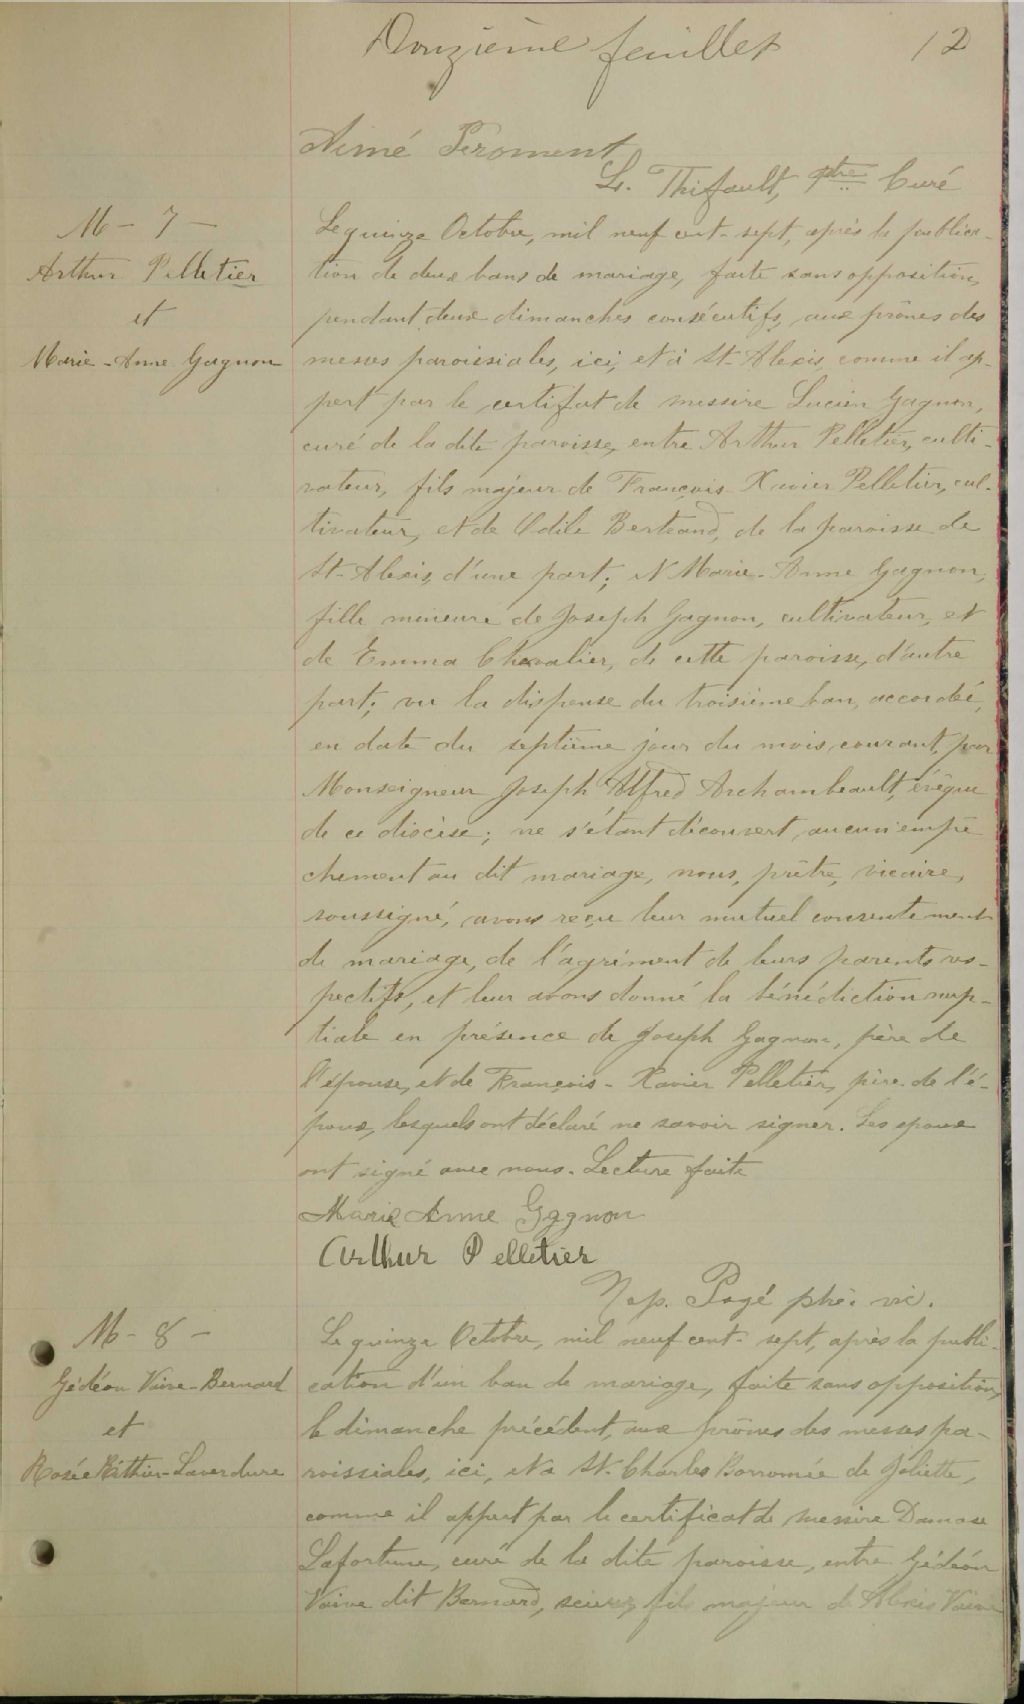 Douzième feuillet 12
Aimé Froment
L. Thifault, Ptre Curé
M - 7 -
Arthur Pelletier
et
Marie-Anne Gagnon
Le quinze Octobre, mil neuf cent-sept, après la publica-
tion de deux bans de mariage, faite sans opposition,
pendant deux dimanches consécutifs, aux prônes des
messes paroissiales, ici, et à St-Alexis, comme il ap-
pert par le certificat de messire Lucien Gagnon,
curé de la dite paroisse, entre Arthur Pelletier, culti-
vateur, fils majeur de François Xavier Pelletier, cul-
tivateur, et de Odile Bertrand, de la paroisse de
St-Alexis, d'une part; et Marie-Anne Gagnon,
fille mineure de Joseph Gagnon, cultivateur, et
de Emma Chevalier, de cette paroisse, d'autre
part; vu la dispense du troisième ban, accordée,
en date du septième jour du mois courant, par
Monseigneur Joseph Alfred Archambeault, évêque
de ce diocèse; ne s'étant découvert aucun empê
chement au dit mariage, nous, prêtre, vicaire,
soussigné, avons reçu leur mutuel consentement
de mariage, de l'agrément de leurs parents res-
pectifs, et leur avons donné la bénédiction nup-
tiale en présence de Joseph Gagnon, père de
l'épouse, et de François-Xavier Pelletier, père de l'é-
poux, lesquels ont déclaré ne savoir signer. Les epoux
ont signé avec nous. Lecture faite
Marie Anne Gagnon
Arthur Pelletier
Nap. Pagé ptre. vic.
M - 8 -
Gédéon Vaive-Bernard
et
Rosée Rithier-Laverdure
Le quinze Octobre, mil neuf cent-sept, après la publi-
cation d'un ban de mariage, faite sans opposition,
le dimanche précédent, aux prônes des messes pa-
roissiales, ici, et à St-Charles Borromée de Joliette,
comme il appert par le certificat de messire Damase
Lafortune, curé de la dite paroisse, entre Gédéon
Vaive dit Bernard, scieur, fils majeur de Alexis Vaive